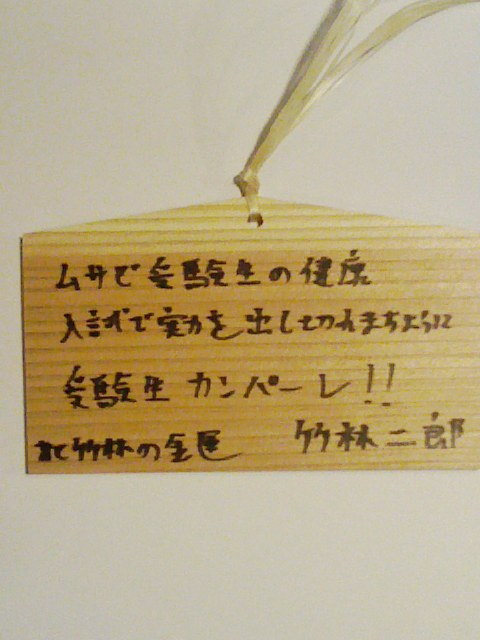 ムサビ受験生の健康
入試で実力を出し切れますように
受験生 カンパーレ!!
竹林の金運 竹林二郎